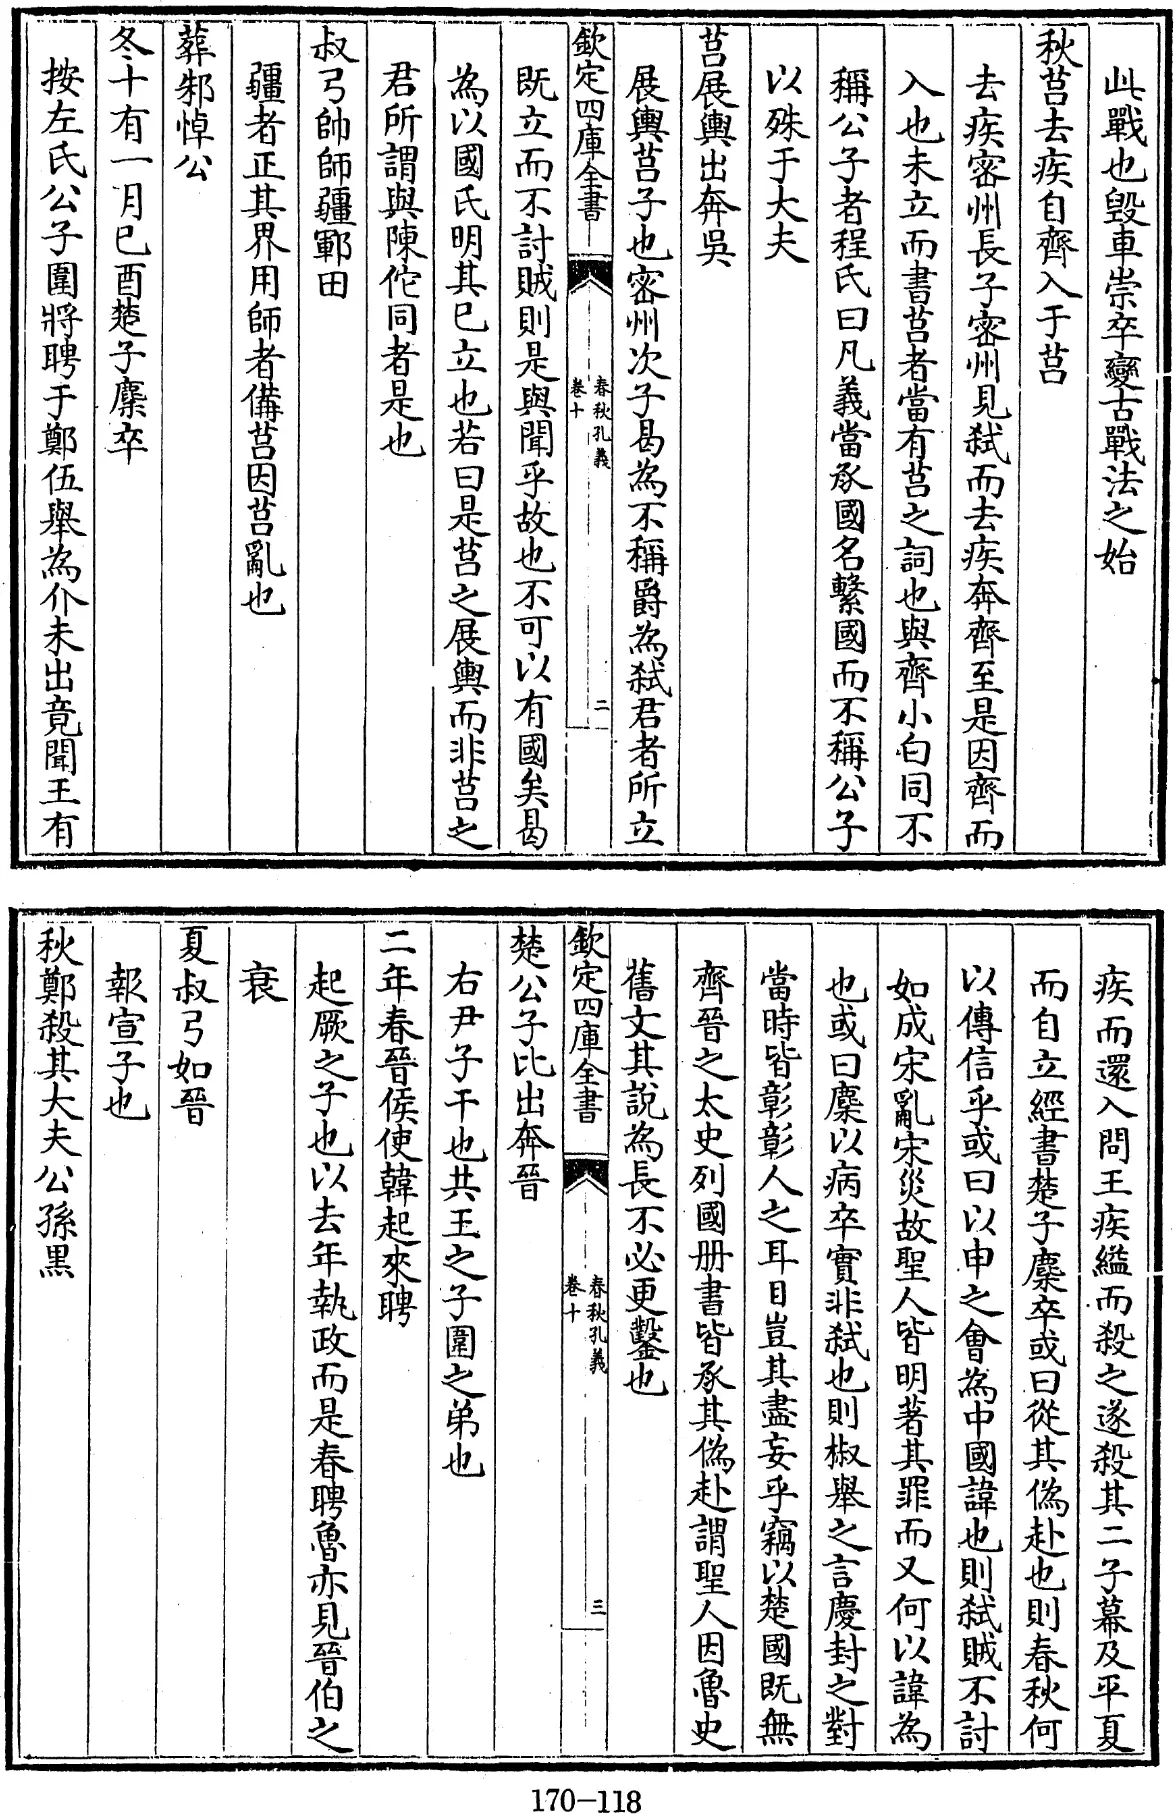 此戰也毀車崇卒變古戰法之始
秋莒去疾自齊入于莒
去疾密州長子密州見弑而去疾奔齊至是因齊而
入也未立而書莒者當有莒之詞也與齊小白同不
稱公子者程氏曰凡義當承國名繫國而不稱公子
以殊于大夫
莒展輿出奔吳
展輿莒子也密州次子曷為不稱爵為弑君者所立
欽定四庫全書
春秋孔義
卷十
二
既立而不討賊則是與聞乎故也不可以有國矣曷
為以國氏明其已立也若曰是莒之展輿而非莒之
君所謂與陳佗同者是也
叔弓帥師疆鄆田
疆者正其界用師者備莒因莒亂也
葬邾悼公
冬十有一月已酉楚子麇卒
按左氏公子圍將聘于鄭伍舉為介未出竟聞王有
疾而還入問王疾縊而殺之遂殺其二子幕及平夏
而自立經書楚子麇卒或曰從其偽赴也則春秋何
以傳信乎或曰以申之會為中國諱也則弑賊不討
如成宋亂宋災故聖人皆明著其罪而又何以諱為
也或曰麇以病卒實非弑也則椒舉之言慶封之對
當時皆彰彰人之耳目豈其盡妄乎竊以楚國既無
齊晉之太史列國冊書皆承其偽赴謂聖人因魯史
舊文其說為長不必更鑿也
欽定四庫全書
春秋孔義
卷十
三
楚公子比出奔晉
右尹子干也共王之子圍之弟也
二年春晉侯使韓起來聘
起厥之子也以去年執政而是春聘魯亦見晉伯之
衰
夏叔弓如晉
報宣子也
秋鄭殺其大夫公孫黑
170-118